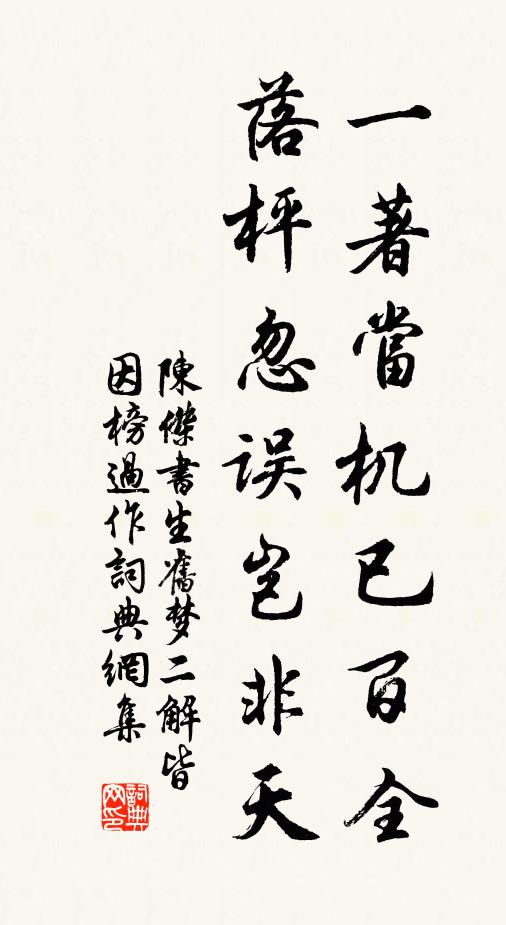 一著當机已百全
落枰忽误岂非天
陳傑書生舊梦二解皆
因榜過作詞典網集
詞典网印